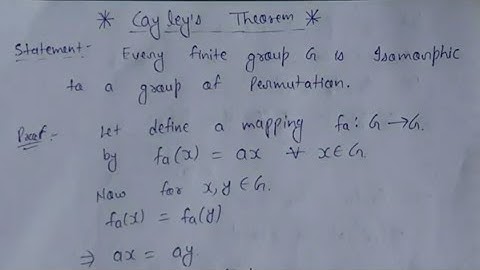 * Cayley's Theorem *
Statement:- Every finite group G is Isomorphic
to a group of Permutation.
Proof:- Let define a mapping fa: G → G.
by fa(x) = ax ∀ x ∈ G.
Now for x, y ∈ G.
fa(x) = fa(y)
⇒ ax = ay